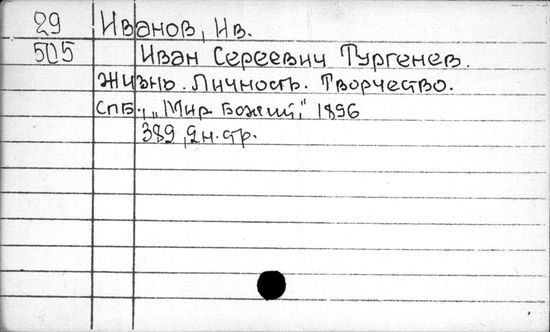 29 Иванов, Ив.
505 Иван Сереевич Тургенев.
Жизнь. Личность. Творчество.
СПБ., „Мир Божий," 1896
389, 2н.стр.